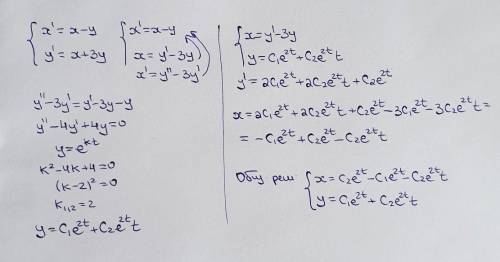 { x' = x-y
y' = x+3y
{ x' = x-y
x = y'-3y
x' = y''-3y'
y''-3y' = y'-3y-y
y''-4y'+4y=0
y=e^{kt}
k²-4k+4=0
(k-2)²=0
k_{1,2}=2
y=C₁e^{2t}+C₂e^{2t}t
{ x=y'-3y
y=C₁e^{2t}+C₂e^{2t}t
y'=2C₁e^{2t}+2C₂e^{2t}t+C₂e^{2t}
x=2C₁e^{2t}+2C₂e^{2t}t+C₂e^{2t}-3C₁e^{2t}-3C₂e^{2t}t=
=-C₁e^{2t}+C₂e^{2t}-C₂e^{2t}t
Общ реш { x=C₂e^{2t}-C₁e^{2t}-C₂e^{2t}t
y=C₁e^{2t}+C₂e^{2t}t